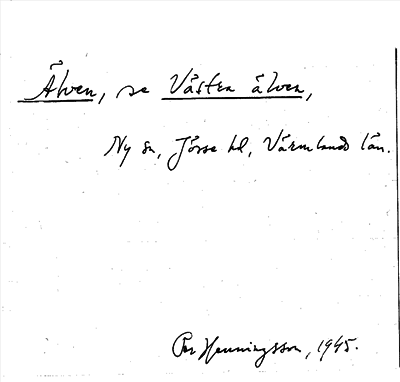 Älven, se Västra älven,
Ny sn, Jösse hd, Värmlands län.
Per Henningsson, 1945.